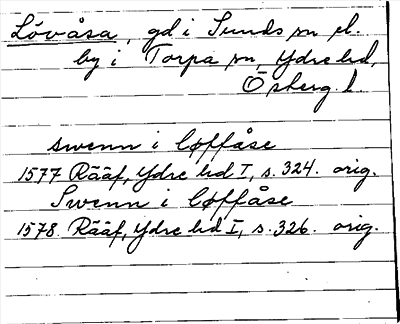 Lövåsa, gd i Sunds sn el.
by i Torpa sn, Ydre hd,
Österg. l.
swenn i løffåse
1577 Rääf, Ydre hd I, s. 324. orig.
Swenn i løffåse
1578. Rääf, Ydre hd I, s. 326. orig.